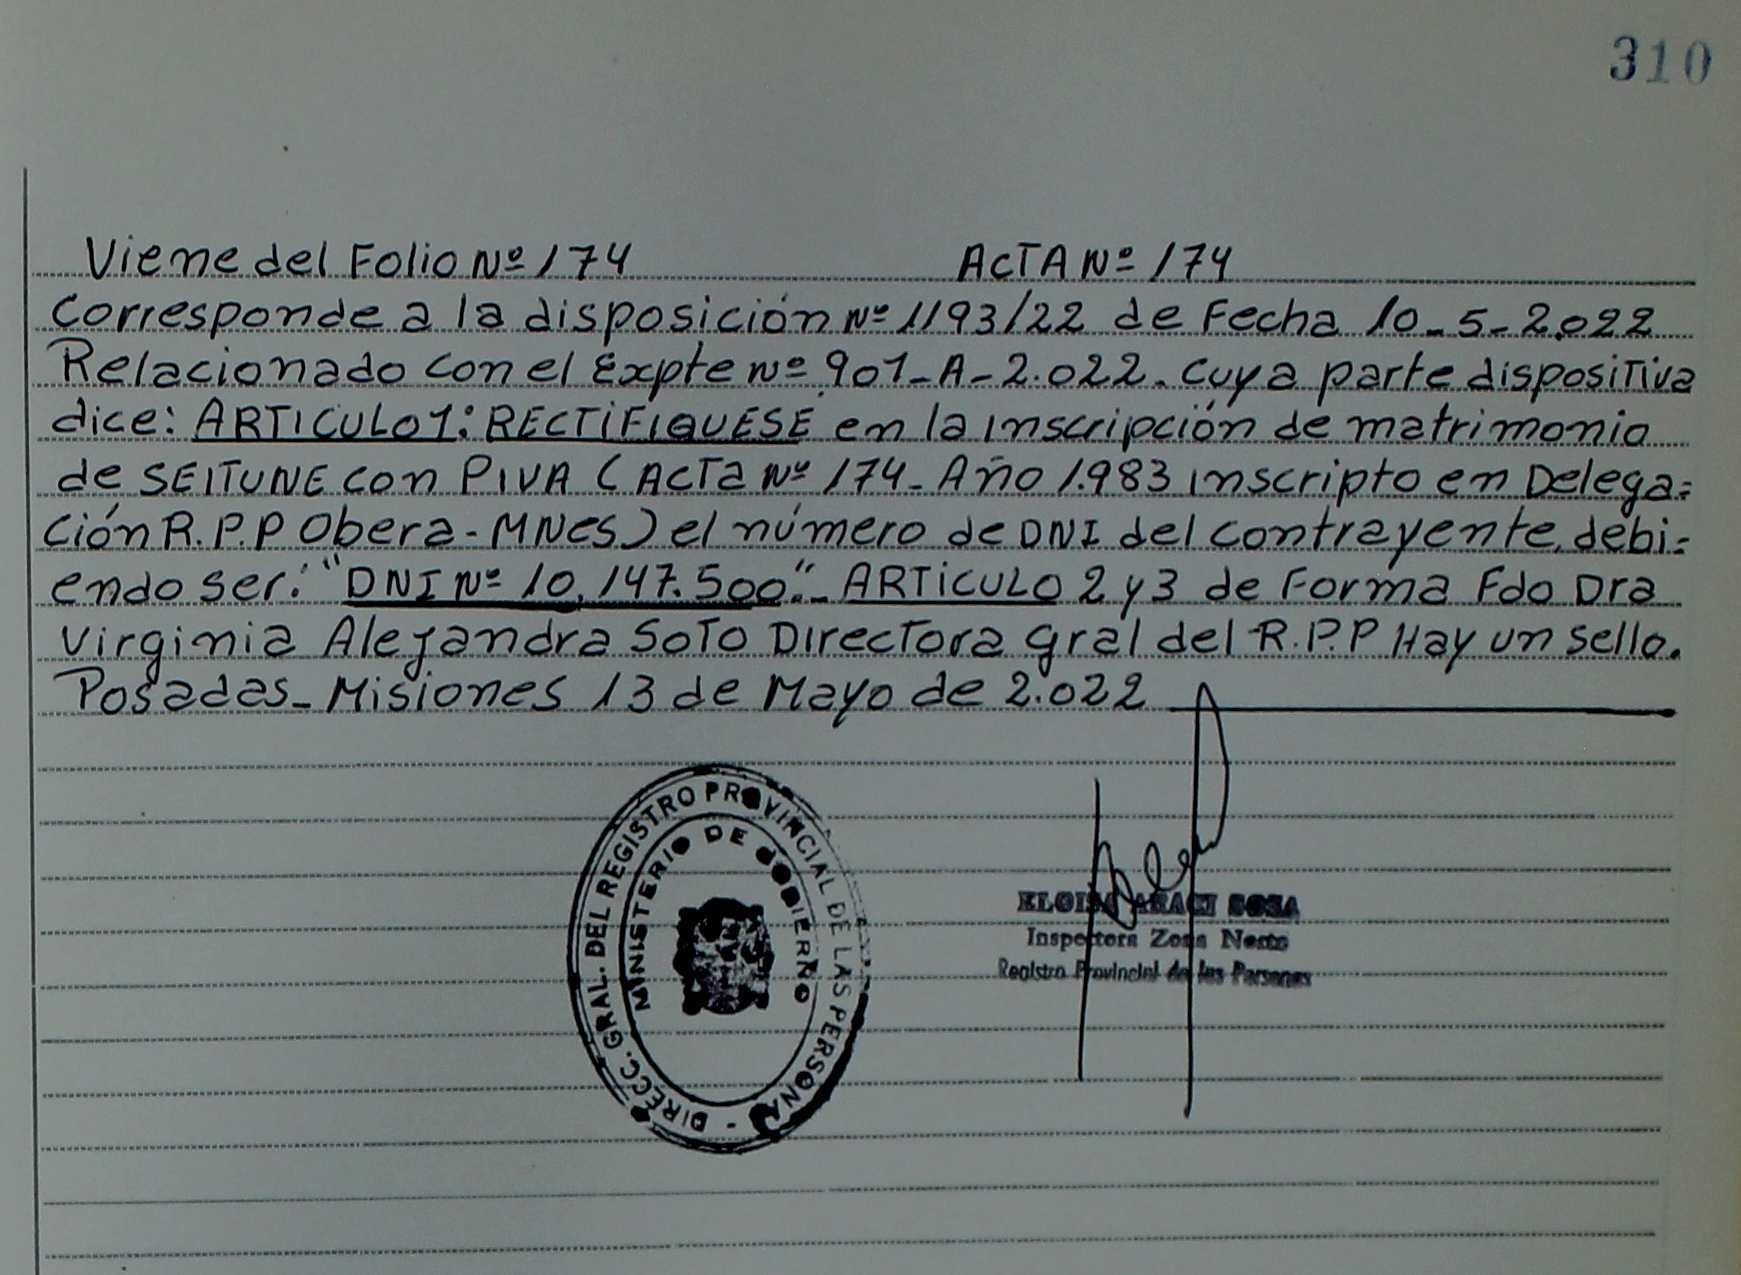 310
Viene del Folio Nº 174 ACTA Nº 174
Corresponde a la disposición Nº 1193/22 de Fecha 10-5-2.022
Relacionado con el Expte Nº 901-A-2.022. Cuya parte dispositiva
dice: ARTICULO 1: RECTIFIQUESE en la inscripción de matrimonio
de SEITUNE con PIVA (ACTA Nº 174- Año 1.983 inscripto en Delega=
ción R.P.P Obera-MNES) el número de DNI del contrayente, debi=
endo ser: "DNI Nº 10.147.500".- ARTICULO 2 y 3 de Forma Fdo Dra
Virginia Alejandra SOTO Directora gral del R.P.P Hay un sello.
Posadas- Misiones 13 de Mayo de 2.022
DIRECC. GRAL. DEL REGISTRO PROVINCIAL DE LAS PERSONAS -
MINISTERIO DE GOBIERNO
ELOISA ARACI SOSA
Inspectora Zona Norte
Registro Provincial de las Personas